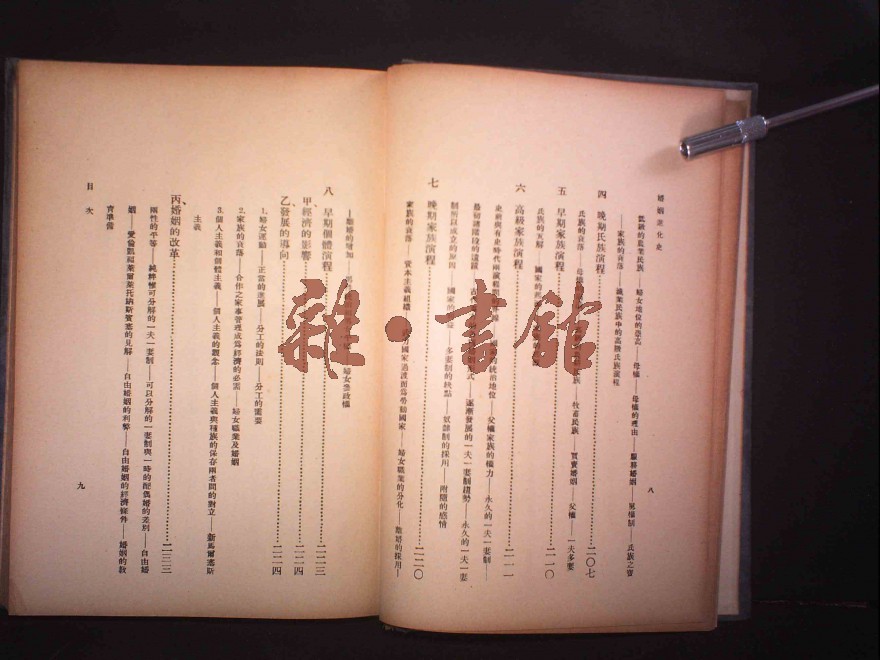 婚姻進化史
低級的農業民族——婦女地位的崇高——母權——母權的理由——服務婚姻——冠權制——氏族之寶
——家族的衰落——農業民族中的高級氏族演程
四 晚期氏族演程……二〇七
氏族的衰落——牧畜民族——買賣婚姻——父權——一夫多妻
氏族的瓦解——國家的
五 早期家族演程……二一〇
六 高級家族演程……二一一
史前與有史時代兩——的統治地位——父權家族的權力——永久的一夫一妻制——
最初諸階段的遺跡——式——逐漸發展的一夫一妻制趨勢——永久的一夫一妻
制所以成立的原因——國家的——多妻制的缺點——奴隸制的採用——附隨的感情
七 晚期家族演程……二二〇
家族的衰落——資本主義組織——國家過渡而為勞動國家——婦女職業的分化——離婚的採用—
—離婚的增加——婦女參政權
八 早期個體演程……二二三
甲、經濟的影響……二二四
乙、發展的導向……二二四
1.婦女運動——正當的進展——分工的法則——分工的需要
2.家族的衰落——合作之家事管理成爲經濟的必需——婦女職業及婚姻
3.個人主義和個體主義——個人主義的觀念——個人主義與種族的保存兩者間的對立——新馬爾塞斯
主義
丙、婚姻的改革……二三三
兩性的平等——純粹惟可分解的一夫一妻制——可以分解的一妻制與一時的配偶婚的差別——自由婚
姻——愛倫凱和萊爾萊托納斯賓塞的見解——自由婚姻的利弊——自由婚姻的經濟條件——婚姻的教
育準備
目次
八
九
雜·書館